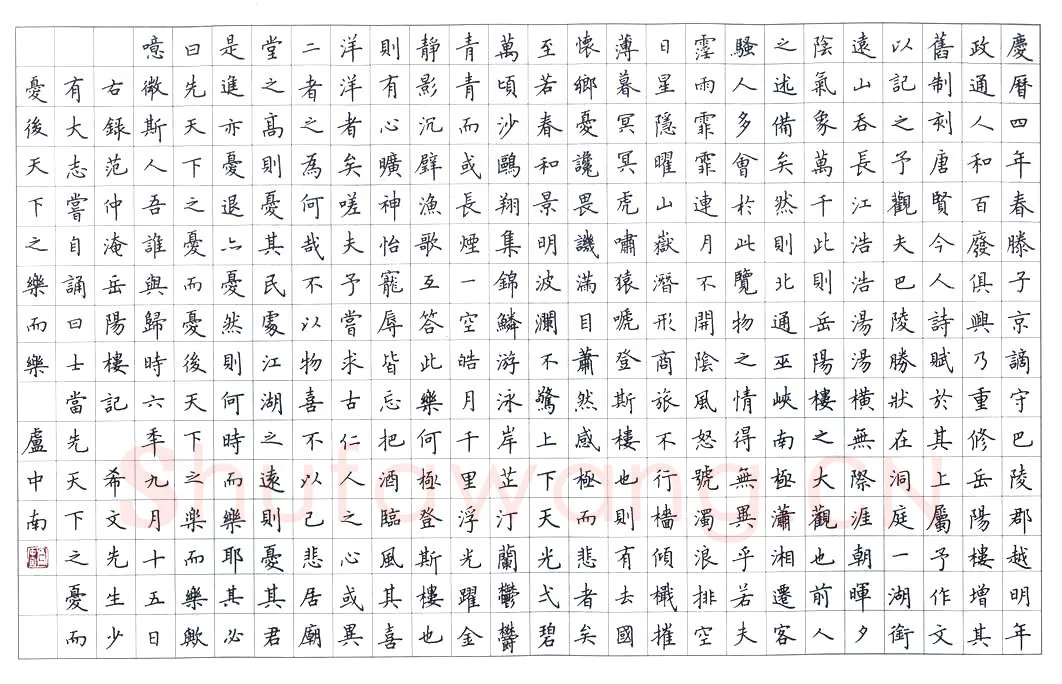 慶曆四年春滕子京謫守巴陵郡越明年
政通人和百廢俱興乃重修岳陽樓增其
舊制刻唐賢今人詩賦於其上屬予作文
以記之予觀夫巴陵勝狀在洞庭一湖銜
遠山吞長江浩浩湯湯橫無際涯朝暉夕
陰氣象萬千此則岳陽樓之大觀也前人
之述備矣然則北通巫峽南極瀟湘遷客
騷人多會於此覽物之情得無異乎若夫
霪雨霏霏連月不開陰風怒號濁浪排空
日星隱曜山嶽潛形商旅不行檣傾檝摧
薄暮冥冥虎嘯猿唬登斯樓也則有去國
懷鄉憂讒畏譏滿目蕭然感極而悲者矣
至若春和景明波瀾不驚上下天光弌碧
萬頃沙鷗翔集錦鱗游泳岸芷汀蘭鬱鬱
青青而或長煙一空皓月千里浮光躍金
靜影沉璧漁歌互答此樂何極登斯樓也
則有心曠神怡寵辱皆忘把酒臨風其喜
洋洋者矣嗟夫予嘗求古仁人之心或異
二者之為何哉不以物喜不以己悲居廟
堂之高則憂其民處江湖之遠則憂其君
是進亦憂退亦憂然則何時而樂耶其必
曰先天下之憂而憂後天下之樂而樂歟
噫微斯人吾誰與歸時六年九月十五日
右錄范仲淹岳陽樓記 希文先生少
有大志嘗自誦曰士當先天下之憂而
憂後天下之樂而樂 盧中南
Shufawang.CN